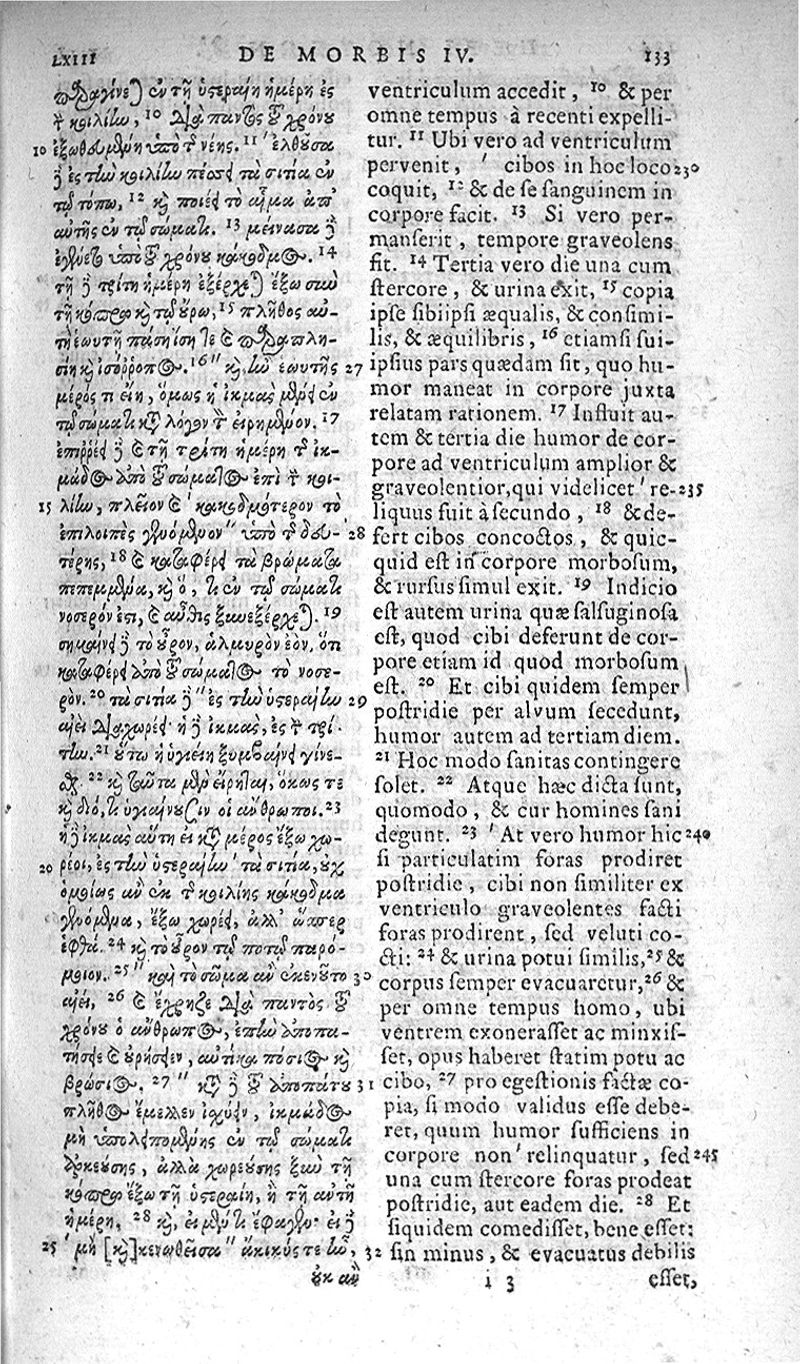 LXIII DE MORBIS IV. 133
παραγίνεται ἐν τῇ ὑστεραίῃ ἡμέρῃ ἐς
τὴν κοιλίην, 10 διὰ παντὸς τοῦ χρόνου
10 ἐξωθουμένη ὑπὸ τῆς νέης. 11 ′ ἐλθοῦσα
δὲ ἐς τὴν κοιλίην πέσσει τὰ σιτία ἐν
τῷ τόπῳ, 12 καὶ ποιέει τὸ αἷμα ἀπ'
αὐτῆς ἐν τῷ σώματι. 13 μείνασα δὲ
γίνεται ὑπὸ τοῦ χρόνου κάκοδμος. 14
τῇ δὲ τρίτῃ ἡμέρῃ ἐξέρχεται ἔξω σὺν
τῇ κόπρῳ καὶ τῷ οὔρῳ, 15 πλῆθος αὐ-
τὴ ἑωυτῇ πάσῃ ἴση τε καὶ παραπλη-
σίη καὶ ἰσόρροπος. 16 ″ καὶ ἢν ἑωυτῆς 27
μέρος τι εἴη, ὅμως ἡ ἰκμὰς μένει ἐν
τῷ σώματι κατὰ λόγον τὸν εἰρημένον. 17
ἐπιρρέει δὲ καὶ τῇ τρίτῃ ἡμέρῃ τῆς ἰκ-
μάδος ἀπὸ τοῦ σώματος ἐπὶ τὴν κοι-
15 λίην, πλεῖον καὶ ′ κακοδμότερον τὸ
ἐπιλοιπὲς γενόμενον ″ ὑπὸ τῆς δευ- 28
τέρης, 18 καὶ καταφέρει τὰ βρώματα
πεπεμμένα, καὶ ὅ, τι ἐν τῷ σώματι
νοσερόν ἐστι, καὶ αὖθις ξυνεξέρχεται. 19
σημαίνει δὲ τὸ οὖρον, ἁλμυρὸν ἐὸν, ὅτι
καταφέρει ἀπὸ τοῦ σώματος τὸ νοσε-
ρόν. 20 τὰ σιτία δὲ ″ ἐς τὴν ὑστεραίην 29
αἰεὶ διαχωρέει· ἡ δὲ ἰκμὰς, ἐς τὴν τρί-
την. 21 οὕτω ἡ ὑγιείη ξυμβαίνει γίνε-
σθαι. 22 καὶ ταῦτα μὲν εἴρηται, ὅκως τε
καὶ διό, τι ὑγιαίνουσιν οἱ ἄνθρωποι. 23
ἡ δὲ ἰκμὰς αὕτη εἰ κατὰ μέρος ἔξω χω-
20 ρέοι, ἐς τὴν ὑστεραίην ′ τὰ σιτία, οὐχ
ὁμοίως ἂν ἐκ τῆς κοιλίης κάκοδμα
γενόμενα, ἔξω χωρέει, ἀλλ' ὥσπερ
ἑφθά. 24 καὶ τὸ οὖρον τῷ ποτῷ παρό-
μοιον. 25 ″ καὶ τὸ σῶμα ἂν ἐκενοῦτο 30
αἰεί, 26 καὶ ἔχρηζε διὰ παντὸς τοῦ
χρόνου ὁ ἄνθρωπος, ἐπὴν ἀποπα-
τήσειε καὶ οὐρήσειεν, αὐτίκα πόσιος καὶ
βρώσιος. 27 ″ κατὰ δὲ τοῦ ἀποπάτου 31
πλῆθος ἔμελλεν ἰσχύειν, ἰκμάδος
μὴ ὑπολειπομένης ἐν τῷ σώματι
ἀρκεύσης, ἀλλὰ χωρεύσης ξὺν τῇ
κόπρῳ ἔξω τῇ ὑστεραίῃ, ἢ τῇ αὐτῇ
ἡμέρῃ. 28 καὶ, εἰ μέν τι ἔφαγεν· εἰ δὲ
25 ′ μὴ [καὶ] κενωθεῖσα ″ ἄκικύς τε ἦν, 32
οὐκ ἂν
ventriculum accedit, 10 & per
omne tempus à recenti expelli-
tur. 11 Ubi vero ad ventriculum
pervenit, ′ cibos in hoc loco 230
coquit, 12 & de ſe sanguinem in
corpore facit. 13 Si vero per-
manſerit, tempore graveolens
fit. 14 Tertia vero die una cum
ſtercore, & urina exit, 15 copia
ipſe ſibiipſi æqualis, & conſimi-
lis, & æquilibris, 16 etiamſi ſui-
ipſius pars quædam ſit, quo hu-
mor maneat in corpore juxta
relatam rationem. 17 Influit au-
tem & tertia die humor de cor-
pore ad ventriculum amplior &
graveolentior, qui videlicet ′ re- 235
liquus fuit à ſecundo, 18 & de-
fert cibos concoctos, & quic-
quid eſt in corpore morboſum,
& rurſus simul exit. 19 Indicio
eſt autem urina quæ ſalſuginoſa
eſt, quod cibi deferunt de cor-
pore etiam id quod morboſum
eſt. 20 Et cibi quidem ſemper
poſtridie per alvum ſecedunt,
humor autem ad tertiam diem.
21 Hoc modo ſanitas contingere
ſolet. 22 Atque hæc dicta ſunt,
quomodo, & cur homines ſani
degunt. 23 ′ At vero humor hic 240
ſi particulatim foras prodiret
poſtridie, cibi non ſimiliter ex
ventriculo graveolentes facti
foras prodirent, ſed veluti co-
cti: 24 & urina potui ſimilis, 25 &
corpus ſemper evacuaretur, 26 &
per omne tempus homo, ubi
ventrem exoneraſſet ac minxiſ-
ſet, opus haberet ſtatim potu ac
cibo, 27 pro egeſtionis factæ co-
pia, ſi modo validus eſſe debe-
ret, quum humor ſufficiens in
corpore non ′ relinquatur, ſed 245
una cum ſtercore foras prodeat
poſtridie, aut eadem die. 28 Et
ſiquidem comediſſet, bene eſſet:
ſin minus, & evacuatus debilis
i 3 eſſet,